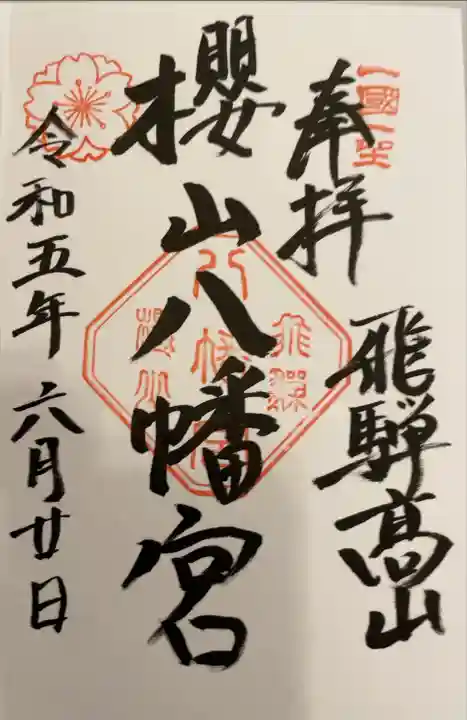 一國一社
奉拜
飛騨高山
櫻山八幡宮
飛騨
八幡宮
櫻山
令和五年六月廿日